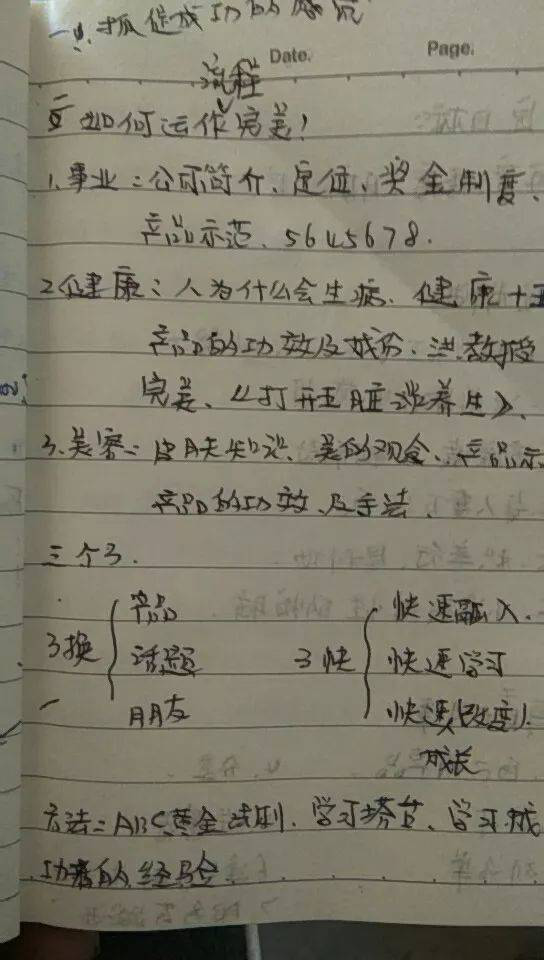 一、抓住成功的感觉
Date. Page.
流程
二 如何运作完美!
1.事业:公司简介、定位、奖金制度、
产品示范、5645678.
2.健康:人为什么会生病、健康十五
产品的功效及成份、洪教授
完美、《打开五脏谈养生》、
3.美容:皮肤知识、美的观念、产品示
产品的功效、及手法、
三个3.
3换 产品 话题 朋友
3快 快速融入. 快速学习 快速改变、成长
方法:ABC黄金法则、学习搭台、学习成
功者的经验